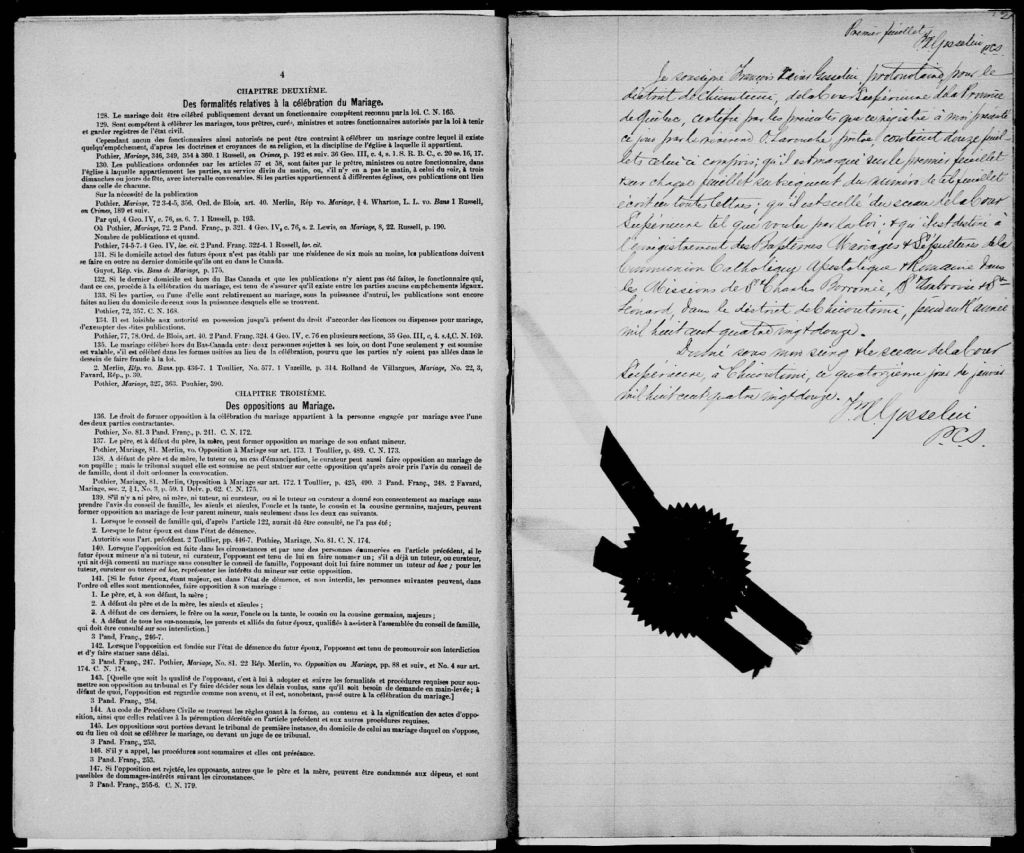 4
CHAPITRE DEUXIÈME.
Des formalités relatives à la célébration du Mariage.
128. Le mariage doit être célébré publiquement devant un fonctionnaire compétent reconnu par la loi. C. N. 165.
129. Sont compétent à célébrer les mariages, tous prêtres, curés, ministres et autres fonctionnaires autorisés par la loi à tenir
et garder registres de l'état civil.
Cependant aucun des fonctionnaires ainsi autorisés ne peut être contraint à célébrer un mariage contre lequel il existe
quelqu'empêchement, d'après les doctrines et croyances de sa religion, et la discipline de l'église à laquelle il appartient.
Pothier, Mariage, 346, 349, 354 à 360. 1 Russell, on Crimes, p. 192 et suiv. 36 Geo. III, c. 4, s. 1. S. R. B. C., c. 20 ss. 16, 17.
130. Les publications ordonnées par les articles 57 et 58, sont faites par le prêtre, ministres ou autre fonctionnaire, dans
l'église à laquelle appartiennent les parties, au service divin du matin, ou, s'il n'y en a pas le matin, à celui du soir, à trois
dimanches ou jours de fête, avec intervalle convenables. Si les parties appartiennent à différentes églises, ces publications ont lieu
dans celle de chacune.
Sur la nécessité de la publication
Pothier, Mariage, 72 3-4-5, 356. Ord. de Blois, art. 40. Merlin, Rép vo. Mariage, § 4. Wharton, L. L. vo. Bans 1 Russell,
on Crimes, 189 et suiv.
Par qui, 4 Geo. IV, c. 76, ss. 6. 7. 1 Russell, p. 193.
Où Pothier, Mariage, 72. 2 Pand. Franç., p. 321. 4 Geo. IV, c. 76, s. 2. Lewis, on Mariage, 8, 22. Russell, p. 190.
Nombre de publications et quand.
Pothier, 74-5-7. 4 Geo IV, loc. cit. 2 Pand. Franç. 322-4. 1 Russell, loc. cit.
131. Si le domicile actuel des futurs époux n'est pas établi par une résidence de six mois au moins, les publications doivent
se faire en outre au dernier domicile qu'ils ont eu dans le Canada.
Guyot, Rép. vis. Bans de Mariage, p. 175.
132. Si le dernier domicile est hors du Bas Canada et que les publications n'y aient pas été faites, le fonctionnaire qui,
dant ce cas, procède à la célébration du mariage, est tenu de s'assurer qu'il existe entre les parties aucuns empêchements légaux.
133. Si les parties, ou l'une d'elle sont relativement au mariage, sous la puissance d'autrui, les publications sont encore
faites au lieu du domicile de ceux sous la puissance desquels elle se trouvent.
Pothier, 72, 357. C. N. 168.
134. Il est loisible aux autorité en possession jusqu'à présent du droit d'accorder des licences ou dispenses pour mariage,
d'exempter des dites publications.
Pothier, 77, 78. Ord. de Blois, art. 40. 2 Pand. Franç. 324. 4 Geo. IV, c. 76 en plusieurs sections, 35 Geo. III, c. 4, s.4,C. N. 169.
135. Le mariage célébré hors du Bas-Canada entre deux personnes sujettes à ses lois, ou dont l'une seulement y est soumise
est valable, s'il est célébré dans les formes usitées au lieu de la célébration, pourvu que les parties n'y soient pas allées dans le
dessein de faire fraude à la loi.
2. Merlin, Rép. vo. Bans. pp. 436-7. 1 Toullier, No. 577. 1 Vazeille, p. 314. Rolland de Villargues, Mariage, No. 22, 3,
Favard, Rép., p. 30.
Pothier, Mariage, 327, 363. Pouhier, 390.
CHAPITRE TROISIÈME.
Des oppositions au Mariage.
136. Le droit de former opposition à la célébration du mariage appartient à la personne engagée par mariage avec l'une
des deux parties contractantes.
Pothier, No. 81. 3 Pand. Franç., p. 241. C. N. 172.
137. Le père, et à défaut du père, la mère, peut former opposition au mariage de son enfant mineur.
Pothier, Mariage, 81. Merlin, vo. Opposition à Mariage sur art. 173. 1 Toullier, p. 489. C. N. 173.
138. A défaut de père et de mère, le tuteur ou, au cas d'émancipation, le curateur peut aussi faire opposition au mariage de
son pupille ; mais le tribunal auquel elle est soumise ne peut statuer sur cette opposition qu'après avoir pris l'avis du conseil de
de famille, dont il doit ordonner la convocation.
Pothier, Mariage, 81. Merlin, Opposition à Mariage sur art. 172. 1 Toullier, p. 425, 490. 3 Pand. Franç., 248. 2 Favard,
Mariage, sec. 2, § 1, No. 3, p. 59. 1 Delv. p. 62. C. N. 175.
139. S'il n'y a ni père, ni mère, ni tuteur, ni curateur, ou si le tuteur ou curateur a donné son consentement au mariage sans
prendre l'avis du conseil de famille, les aïeuls et aïeules, l'oncle et la tante, le cousin et la cousine germains, majeurs, peuvent
former opposition au mariage de leur parent mineur, mais seulement dans les deux cas suivants.
1. Lorsque le conseil de famille qui, d'après l'article 122, aurait dû être consulté, ne l'a pas été ;
2. Lorsque le futur époux est dans l'état de démence.
Autorités sous l'art. précédent. 2 Toullier, pp. 446-7. Pothier, Mariage, No. 81. C. N. 174.
140. Lorsque l'opposition est faite dans les circonstances et par une des personnes énumerées en l'article précédent, si le
futur époux mineur n'a ni tuteur, ni curateur, l'opposant est tenu de lui en faire nommer un ; s'il a déjà un tuteur, ou curateur,
qui ait déjà consenti au mariage sans consulter le conseil de famille, l'opposant doit lui faire nommer un tuteur ad hoc ; pour les
tuteur, curateur ou tuteur ad hoc, représenter les intérêts du mineur sur cette opposition.
141. [Si le futur époux, étant majeur, est dans l'état de démence, et non interdit, les personnes suivantes peuvent, dans
l'ordre où elles sont mentionnées, faire opposition à son mariage :
1. Le père, et, à son défaut, la mère ;
2. A défaut du père et de la mère, les aïeuls et aïeules ;
3. A défaut de ces derniers, le frère ou la sœur, l'oncle ou la tante, le cousin ou la cousine germains, majeurs ;
4. A défaut de tous les sus-nommés, les parents et alliés du futur époux, qualifiés à assister à l'assemblée du conseil de famille,
qui doit être consulté sur son interdiction.]
3 Pand, Franç., 246-7.
142. Lorsque l'opposition est fondée sur l'état de démence du futur époux, l'opposant est tenu de promouvoir son interdiction
et d'y faire statuer sans délai.
3 Pand. Franç., 247. Pothier, Mariage, No. 81. 22 Rép. Merlin, vo. Opposition au Mariage, pp. 88 et suiv., et No. 4 sur art.
174. C. N. 174.
143. [Quelle que soit la qualité de l'opposant, c'est à lui à adopter et suivre les formalités et procédures requises pour sou-
mettre son opposition au tribunal et l'y faire décider sous les délais voulus, sans qu'il soit besoin de demande en main-levée ; à
défaut de quoi, l'opposition est regardée comme non avenu, et il est, nonobstant, passé outre à la célébration du mariage.]
3 Pand. Franç., 254.
144. Au code de Procédure Civile se trouvent les règles quant à la forme, au contenu et à la signification des actes d'oppo-
sition, ainsi que celles relatives à la péremption décrétée en l'article précédent et aux autres procédures requises.
145. Les oppositions sont portées devant le tribunal de première instance, du domicile de celui au mariage duquel on s'oppose,
ou du lieu où doit se célébrer le mariage, ou devant un juge de ce tribunal.
3 Pand. Franç., 253.
146. S'il y a appel, les procédures sont sommaires et elles ont préséance.
3 Pand. Franç., 253.
147. Si l'opposition est rejetée, les opposants, autre que le père et la mère, peuvent être condamnés aux dépens, et sont
passibles de dommages-intérêts suivant les circonstances.
3 Pand. Franç., 255-6. C. N. 179.
Premier feuillet
Gosselin PCS
Je soussigné François Gosselin, protonotaire pour le
district de Chicoutimi, de la Cour Supérieure de la Province
de Québec, certifie par les présentes que ce registre à moi présenté
ce jour par le révérend O. Larouche ptre, contient douze feuil-
lets celui ci compris, qu'il est marqué sur le premier feuillet
& sur chaque feuillet subséquent du numéro de tel feuillet
écrit en toutes lettres; qu'il est scellé du sceau de la Cour
Supérieure tel que voulu par la loi; & qu'il est destiné à
l'enregistrement des Baptêmes Mariages & Sépultures de la
Communion Catholique, Apostolique & Romaine dans
les Missions de St Charles Borromée, St Ambroise & St
Léonard, dans le district de Chicoutimi, pendant l'année
mil huit cent quatre vingt douze.
Donné sous mon seing & le sceau de la Cour
Supérieure, à Chicoutimi, ce quatorzième jour de janvier
mil huit cent quatre vingt douze.
Gosselin
P.C.S.